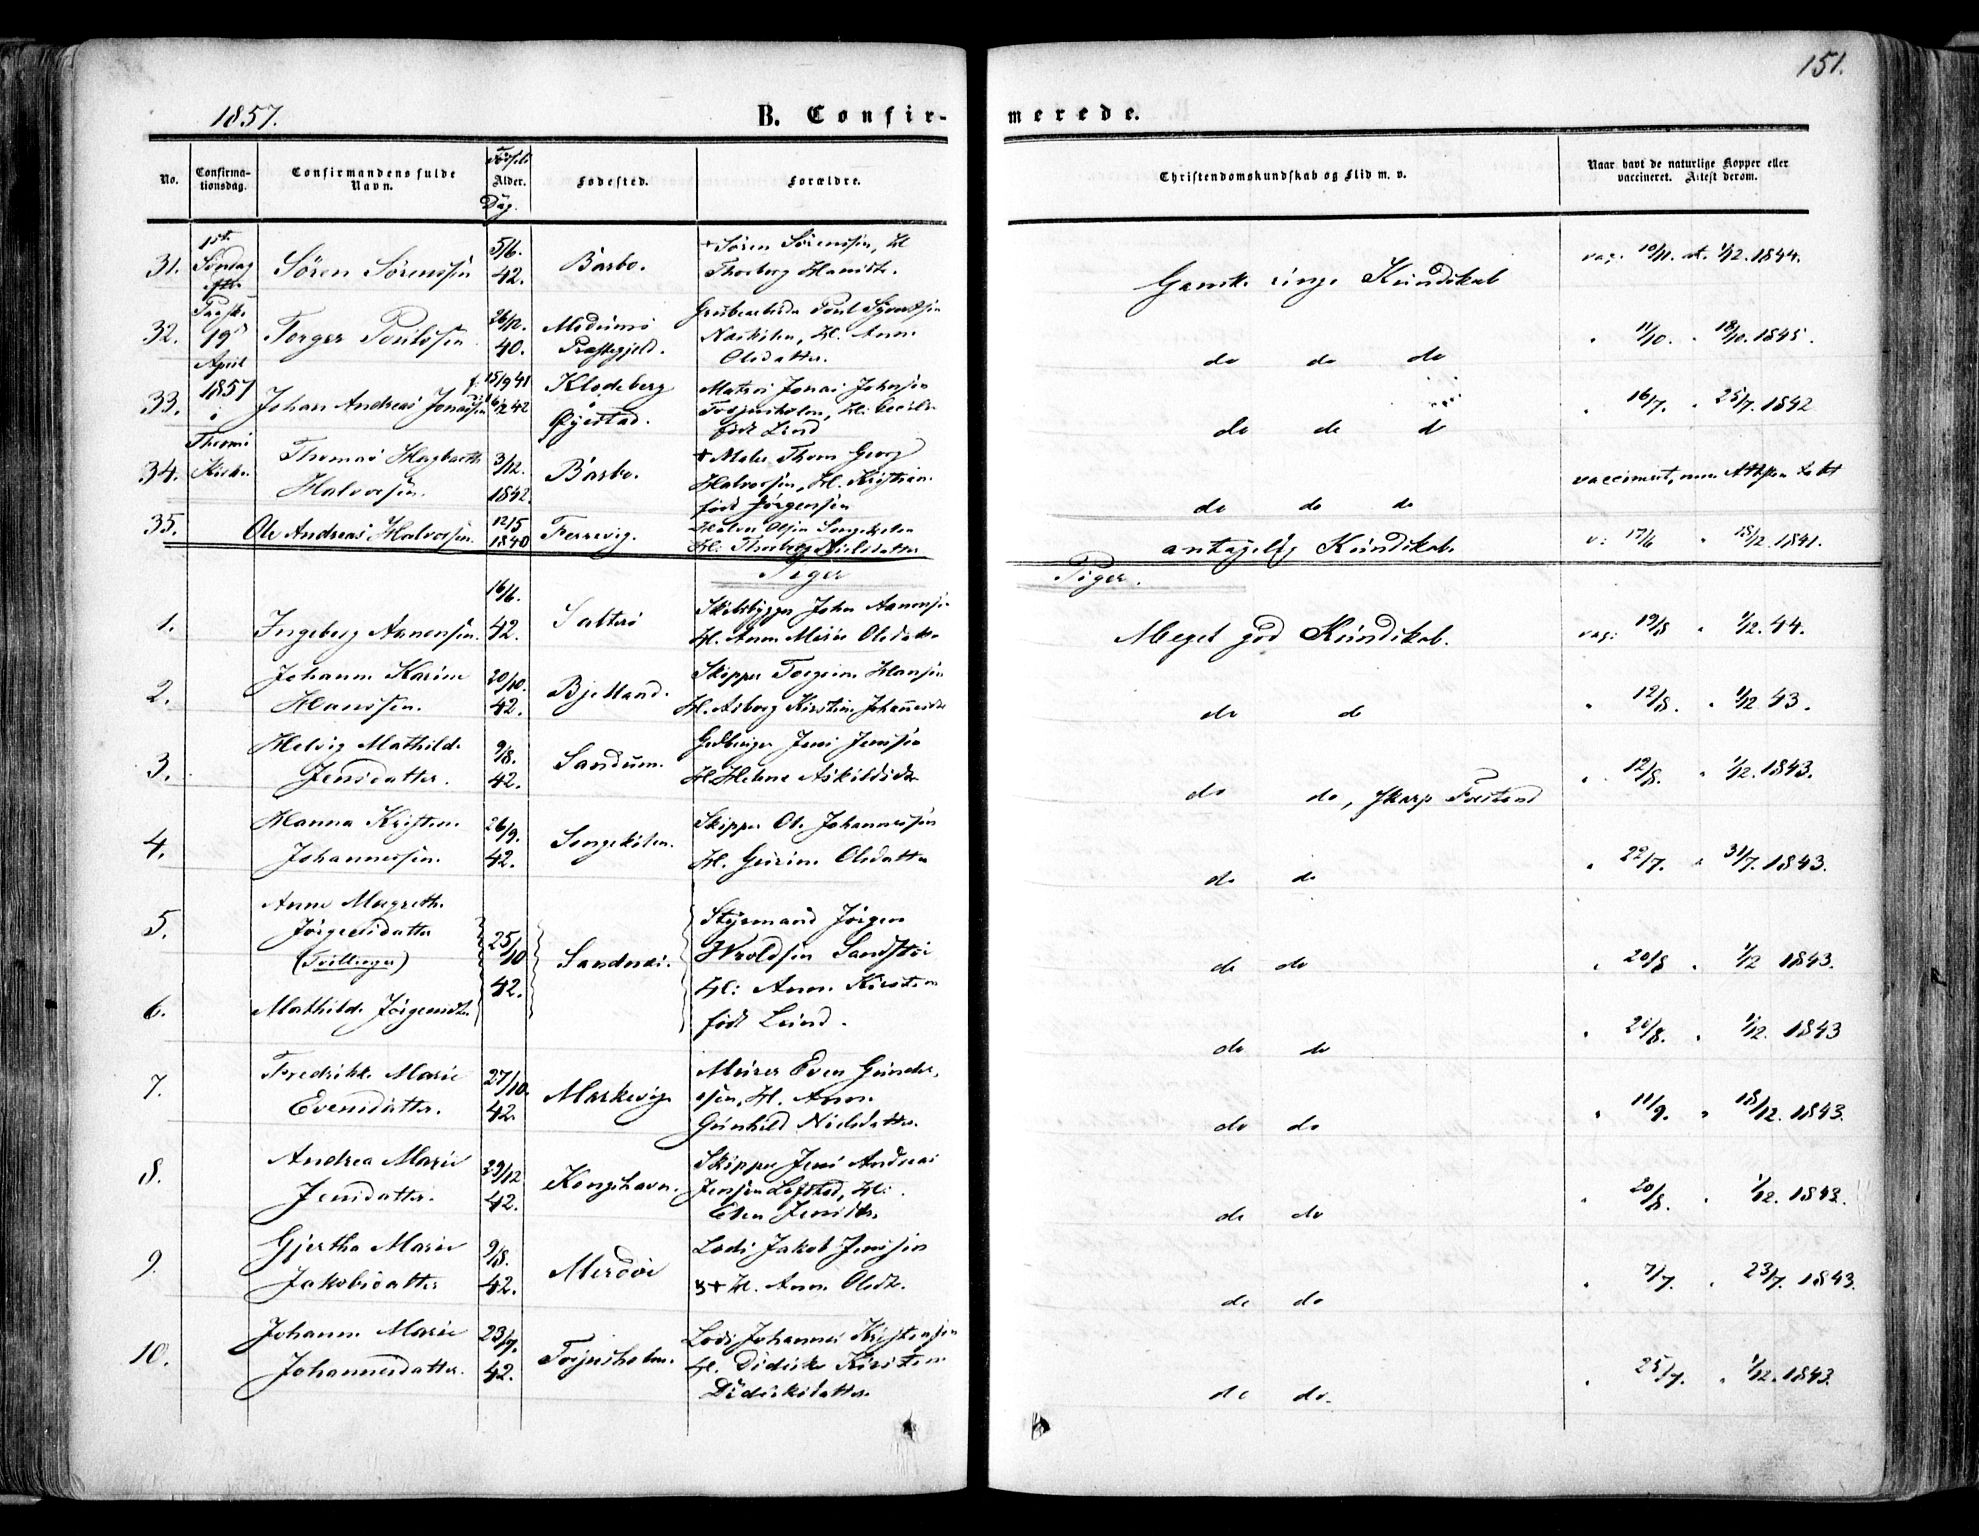 151.
1857.
B. Confir-
merede.
No.
Confirma-
tionsdag.
Confirmandens fulde
Navn.
Fødsels
Alder.
Dag.
Fødested.
Forældre.
Christendomskundskab og Flid m. v.
Naar havt de naturlige Kopper eller
vaccineret. Attest derom.
1st
Søndag
efter
Paaske
19d
April
1857
i
Kirke
31. Sören Sörenssen 5/6. 42. Barbo. + Sören Sörenssen, H.
Thorborg
Ganske ringe Kundskab
vac: 10/11. at. 1/12. 1844.
32. Torger Poulssen 26/12. 40.
Præstegjeld.
Næskilen, H. Anne
Olsdatter.
do do do
" 11/10. " 18/10. 1845.
33. Johan Andreas Jonassen
f. 15/9 41
42
Klodeberg
Øyestad.
Matros Jonas Johnsen
Torjusholm, H.
født Lund
do do do
" 16/7. " 25/7. 1842
34. Thomas
Halvorsen.
3/12. 1842. Barbo.
Halvorsen, H. Kristiane
født Jörgensen
do do do
vaccineret, men Attesten tabt
35. Ole Andreas Halvorsen. 12/5 1840 Ferrevig.
Halvor Olsen Songekilen
H. Thorborg Nielsdatter
antagelig Kundskab.
v: 17/6 " 18/12. 1841.
Piger
Piger.
1. Ingeborg Aanensen. 16/6. 42. Salterö
Skibsbygger John Aanensen
H. Anne Marie Olsdatter
Meget god Kundskab.
vac: 19/8 " 1/12. 44.
2. Johanne Karine
Hanssen.
20/10. 42. Bjelland.
Skipper Torgrim Hansen
H. Asborg Kirstine
do do
" 12/8. " 1/12 43.
3. Helvig Mathilde
Jensdatter.
9/8. 42. Sandum.
Jens Jenssen
H. Helene
do do, skarp Forstand
" 12/8. " 1/12. 1843.
4. Hanna Kristine
Johannessen.
26/9. 42. Songekilen.
Skipper Ole Johannessen
H. Gurine Olsdatter
do do
" 22/7. " 31/7. 1843.
5. Anne Margrethe
Jörgensdatter
(Tvillinger)
25/10 42. Sandnæs.
Styrmand Jörgen
Wroldsen Sandstö
H: Anne Kirstine
født Lund.
do do
" 20/8 " 1/12 1843.
6. Mathilde Jörgensdtr.
do do
" 20/8. " 1/12. 1843
7. Fredrikke Marie
Evensdatter.
27/10. 42. Markevig
Murer Even Gunder-
sen, H. Anne
Gunhild Nielsdatter.
do do
" 11/9. " 18/12. 1843.
8. Andrea Marie
Jensdatter.
29/12 42. Kongshavn.
Skipper Jens Andreas
Jenssen Lofstad, H:
Ellen Jensdtr.
do do
" 20/8. " 1/12. 1843.
9. Gjertha Marie
Jakobsdatter
9/8. 42. Merdöe
Lods Jakob Jenssen
+ H. Anne Olsdtr.
do do
" 7/7. " 23/7. 1843.
10. Johanne Marie
Johannesdatter.
23/7. 42. Torjusholm.
Lods Johannes Kristensen
H. Didrikke Kirstine
Didriksdatter
do do.
" 25/7. " 1/12. 1843.